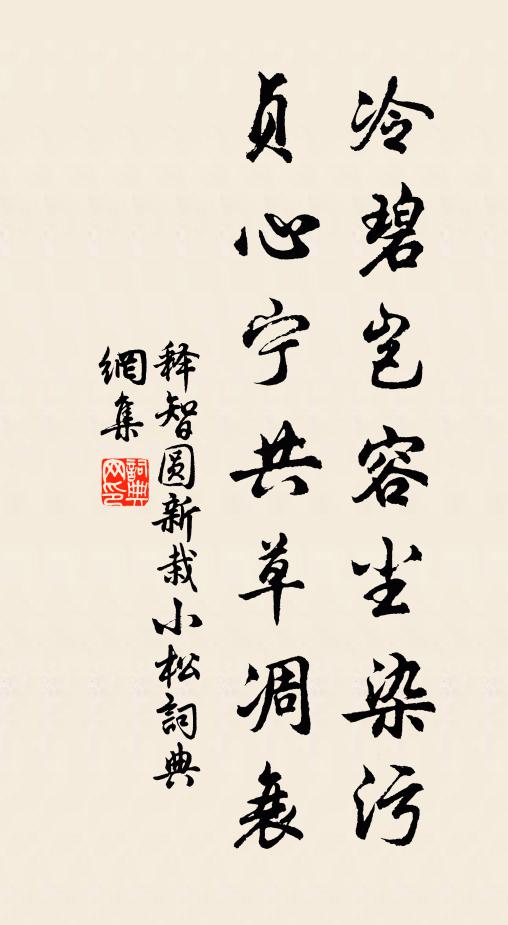 冷碧岂容尘染污
贞心宁共草凋衰
释智圆新栽小松詞典
網集
詞典
网印